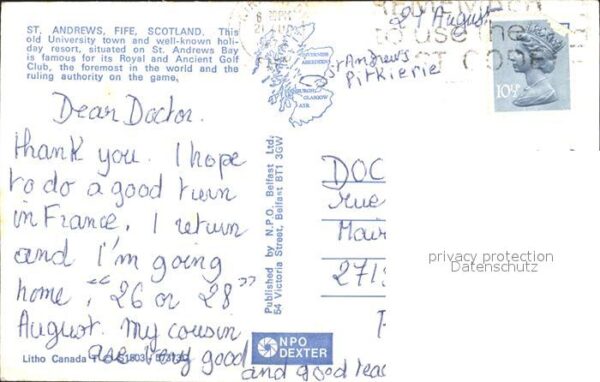 ST. ANDREWS, FIFE, SCOTLAND. This
old University town and well-known holi-
day resort, situated on St. Andrews Bay
is famous for its Royal and Ancient Golf
Club, the foremost in the world and the
ruling authority on the game.
Dear Doctor.
Thank you. I hope
to do a good turn
in France. I return
and I'm going
home, "26 or 28"
August. My cousin
are very good and good
Litho Canada
INVERNESS
ABERDEEN
GLASGOW
AYR
Published by N.P.O. Belfast Ltd.
54 Victoria Street, Belfast BT1 3GW
NPO
DEXTER
24 August
St Andrews
Pitkierie
to use the
10½P
DOC
rue
Mair
271
privacy protection
Datenschutz